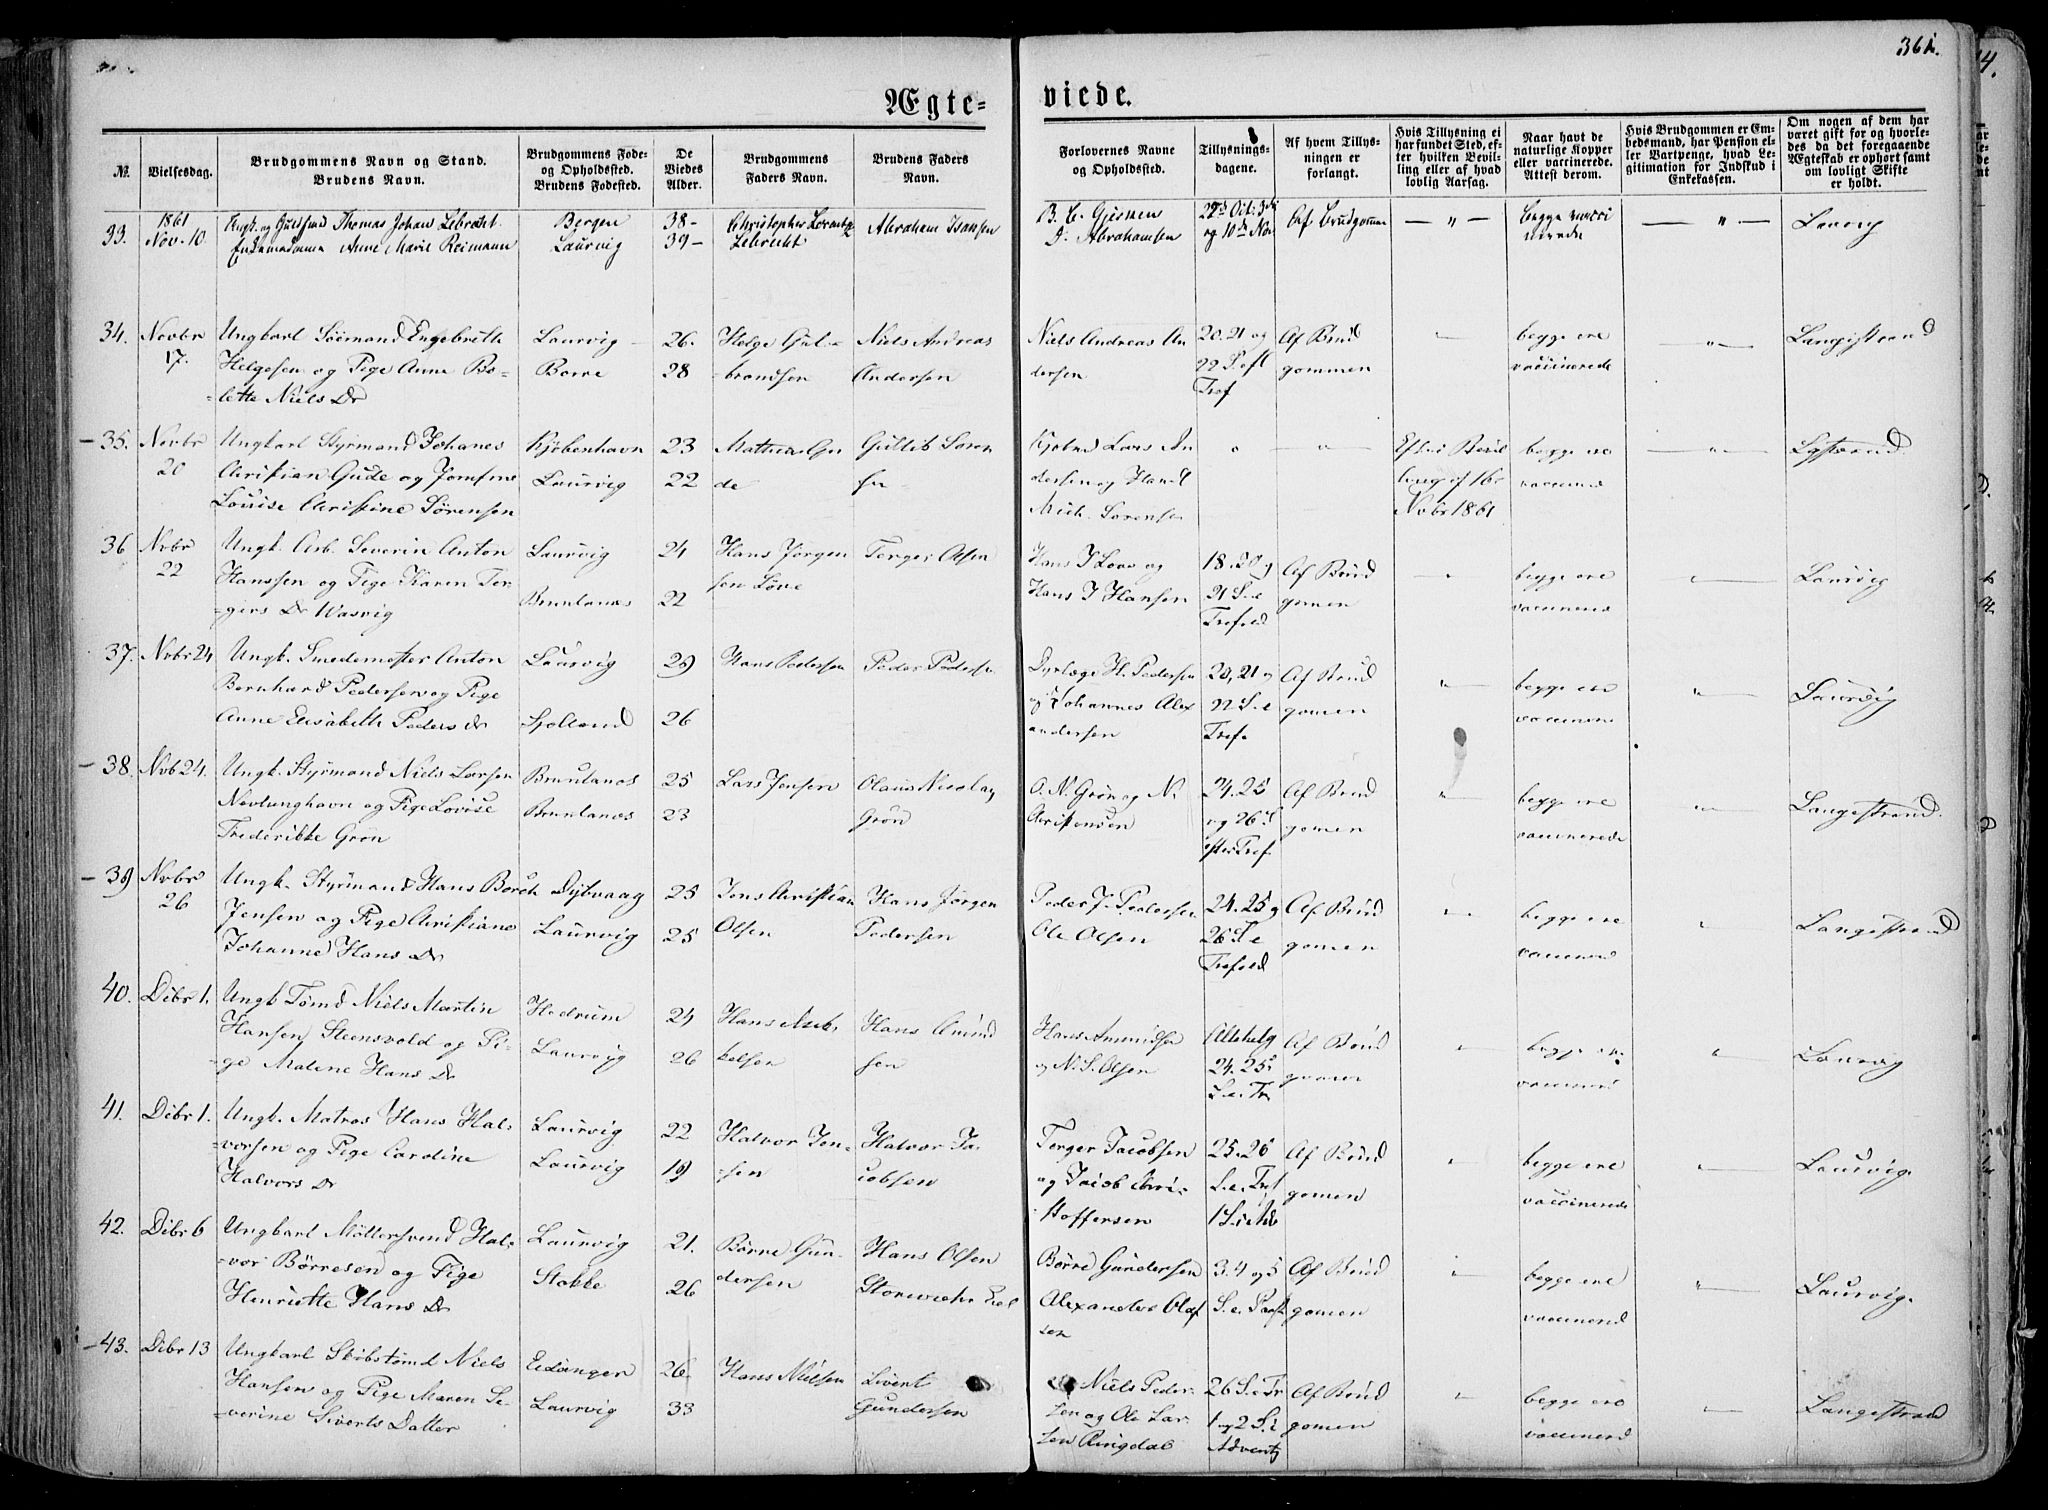 361.
Ægte=
viede.
No.
Vielsesdag.
Brudgommens Navn og Stand.
Brudens Navn.
Brudgommens Føde-
og Opholdssted.
Brudens Fødested.
De
Viedes
Alder.
Brudgommens
Faders Navn.
Brudens Faders
Navn.
Forlovernes Navne
og Opholdssted.
Tillysnings-
dagene.
Af hvem Tillys-
ningen er
forlangt.
Hvis Tillysning ei
har fundet Sted, ef-
ter hvilken Bevil-
ling eller af hvad
lovlig Aarsag.
Naar havt de
naturlige Kopper
eller vaccinerede.
Attest derom.
Hvis Brudgommen er Em-
bedsmand, har Pension el-
ler Vartpenge, hvad Le-
gitimation for Indskud i
Enkekassen.
Om nogen af dem har
været gift før og hvorle-
des da det foregaaende
Ægteskab er ophørt samt
om lovligt Skifte
er holdt.
33. 1861 Nov. 10
Thomas Johan Lebrecht
Anne Marie Reimann
Bergen 38-
Laurvig 39-
Christopher
Lebrecht
Abraham Isaksen
D. Abrahamsen
og 10de Nov
Af Brudgommen
— " —
begge vacci
nerede
— " —
Laurvig
34. Novbr 17.
Ungkarl Söemand Engebreth
Helgesen og Pige Anne Bo-
=lette Niels Dr
Laurvig 26.
Borre 28
Helge Gul-
brandsen
Niels Andreas
Andersen
Niels Andreas An
dersen
20. 21 og
22 S. eft
Tref
Af Brud
gommen
begge ere
vaccinerede
— " —
Langestrand
35. Novbr 20
Ungkarl Styrmand Johanes
Christian Gude og Jomfrue
Louise Christine Sörensen
Kjöbenhavn 23
Laurvig 22
Mathias Gu
de
Gullib Soren
sen
Lars An
dersen og
Mich. Sorensen
"
— " —
Efter Bevil
ling af 16
Novbr 1861
begge ere
vaccinered
— " —
Lgstrand
36 Nvbr 22
Ungk. Arb. Severin Anton
Hanssen og Pige Karen Ter-
=gers Dr Wasvig
Laurvig 24
Brunlanes 22
Hans Jörgen
sen Löve
Terger Olsen
Hans J Love og
Hans J Hansen
18. 20 og
21 S. e
Trefold
Af Brud
gomen
begge ere
vaccinered
Laurvig
37. Nvbr 24
Ungk. Smedemester Anton
Bernhard Pedersen og Pige
Anne Elisabeth Peders Dr
Laurvig 29
Sjolland 26
Hans Pedersen
Peder Pedersen
Dyrlæge H. Pedersen
og Johannes Alex
andersen
20, 21 og
22 S. e
Tref.
Af Brud
gomen
begge ere
vaccinere
Laurvig
38. Nvb 24.
Ungk. Styrmand Niels Larsen
Nevlunghavn og Pige Lovise
Frederikke Grön
Brunlanes 25
Brunlanes 23
Lars Jensen
Olaus Nicolay
Grön
O. N. Grön og N.
Christensen
24. 25
og 26 S
efter Tref
Af Brud
gomen
begge ere
vaccinerede
Langestrand
39 Nvbr 26
Ungk. Styrmand Hans Borch
Jensen og Pige Christiane
Johanne Hans Dr
Dybvaag 25
Laurvig 25
Jens Christian
Olsen
Hans Jörgen
Pedersen
Peder J. Pedersen
Ole Olsen
24. 25 og
26 S. e
Trefold
Af Brud
gomen
begge ere
vaccinered
Langestrand
40. Dcbr 1.
Ungk Tömd Niels Martin
Hansen Steensvold og Pi-
=ge Malene Hans Dr
Hedrum 24
Laurvig 26
Hans
kelsen
Hans Amund
sen
Hans Amundsen
og N. S. Olsen
Allehelg
24. 25
S. e. Tr
Af Brud
gomen
begge ere
vaccinered
Laurvig
41. Dcbr 1.
Ungk. Matros Hans Hal-
=vorsen og Pige Caroline
Halvors Dr
Laurvig 22
Laurvig 19
Halvor Jen-
sen
Halvor Ja-
cobsen
Terger Jacobsen
og Jacob Chri-
stoffersen
25. 26
S. e. Tref
1 S. i Ad
Af Brud
gomen
begge ere
vaccinerede
Laurvig.
42. Dcbr 6
Ungkarl Möllersvend Hal-
=vor Börresen og Pige
Henriette Hans Dr
Laurvig 21.
Stokke 26
Börre Gun-
dersen
Hans Olsen
Börre Gundersen
Alexander Olaf
sen
3. 4 og 5
S. e.
Af Brud
gomen
begge ere
vaccinered
Laurvig.
43. Dcbr 13
Ungkarl Skibstömd Niels
Hansen og Pige Maren Se-
verine Siverts Datter
Eidanger 26.
Laurvig 33
Hans Nielsen
Sivert
Gundersen
Niels Peder-
sen og Ole Lar-
sen Ringdal
26 S. e Tr
1 og 2 S. i
Advent
Af Brud
gomen
begge ere
vaccinered
Langestrand